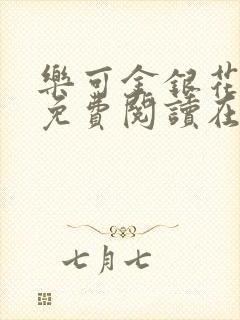 樂可金銀花
免費閱讀在
七月七